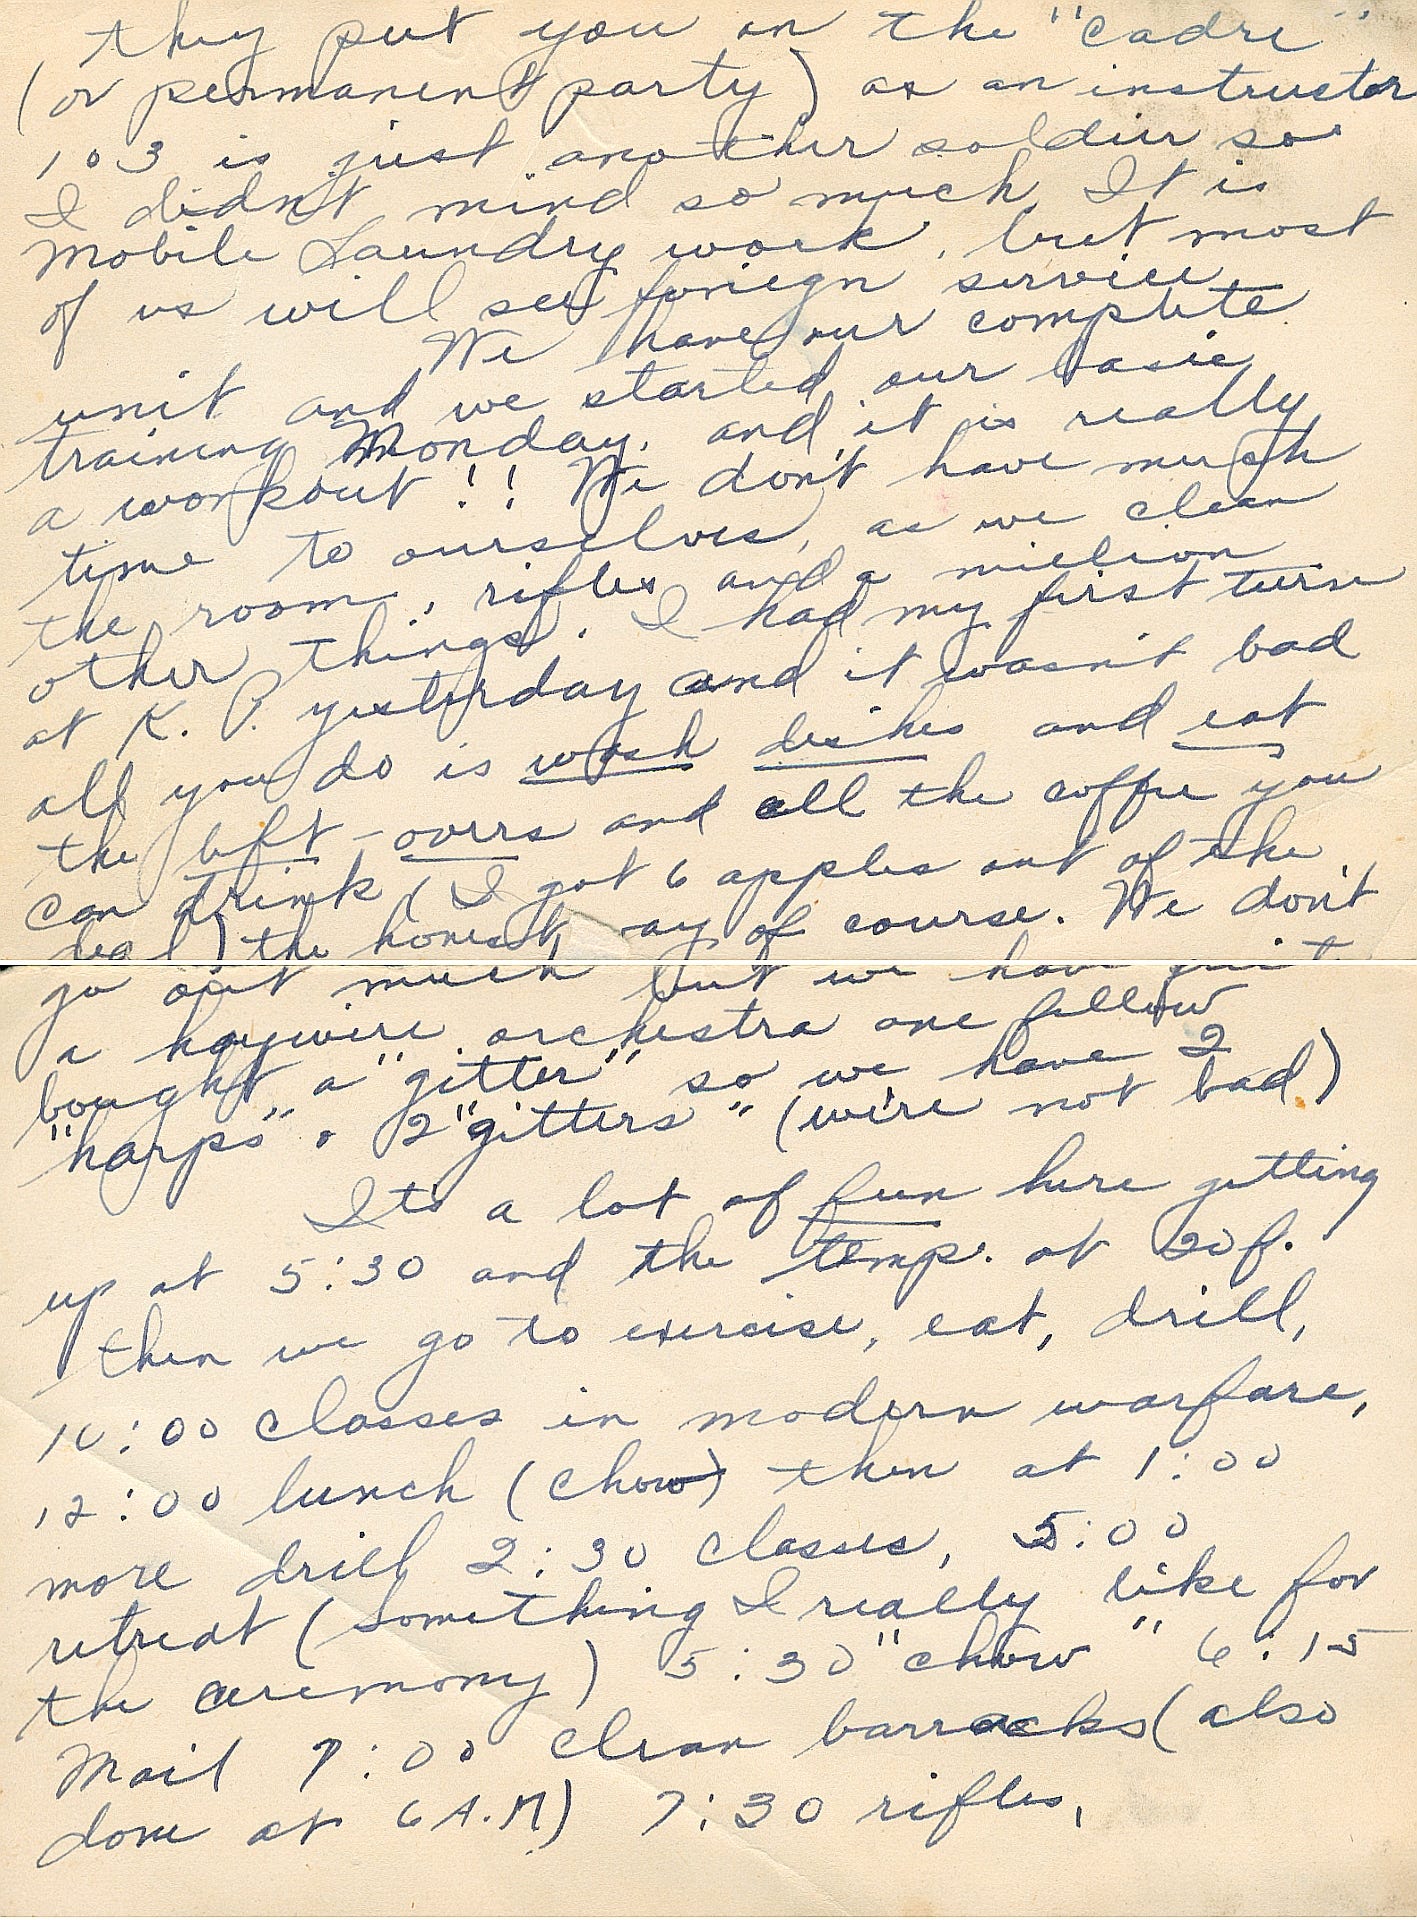 they put you on the "cadre"
(or permanent party) as an instructor
103 is just another soldier so
I didn't mind so much It is
Mobile Laundry work, but most
of us will see foriegn service
We have our complete
unit and we started our basic
training Monday, and it is really
a workout!! We don't have much
time to ourselves, as we clean
the room, rifles and a million
other things. I had my first turn
at K. P. yesterday and it wasn't bad
all you do is wash dishes and eat
the left-overs and all the coffee you
can drink (I got 6 apples out of the
deal) the honest way of course. We don't
go out much but we have quite
a haywire orchestra one fellow
bought a "gitter" so we have 2
"harps" . 2 "gitters" (we're not bad)
It's a lot of fun here getting
up at 5:30 and the temp. at 20 f.
then we go to exercise, eat, drill,
10:00 classes in modern warfare,
12:00 lunch (chow) then at 1:00
more drill 2:30 classes, 5:00
retreat (something I really like for
the ceremony) 5:30 "chow" 6:15
Mail 7:00 clean barracks (also
done at 6 A.M) 7:30 rifles,